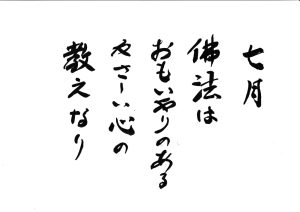 七月
佛法は
おもいやりのある
やさしい心の
教えなり